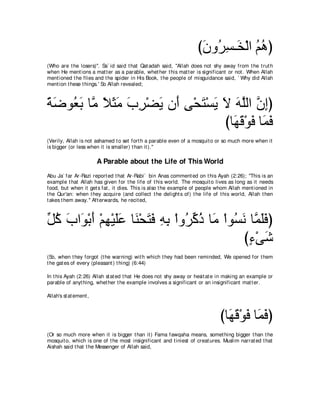 هُمُ الْخَـسِرُونَ)
(Who are the losers)". Sa`id said that Qatadah said, "Allah does not shy away from the truth
when He mentions a matter as a parable, whether this matter is significant or not. When Allah
mentioned the flies and the spider in His Book, the people of misguidance said, `Why did Allah
mention these things.' So Allah revealed,
(إِنَّ اللَّهَ لاَ يَسْتَحْىِ أَن يَضْرِبَ مَثَلاً مَّا بَعُوضَةً
فَمَا فَوْقَهَا)
(Verily, Allah is not ashamed to set forth a parable even of a mosquito or so much more when it
is bigger (or less when it is smaller) than it)."
A Parable about the Life of This World
Abu Ja`far Ar-Razi reported that Ar-Rabi` bin Anas commented on this Ayah (2:26); "This is an
example that Allah has given for the life of this world. The mosquito lives as long as it needs
food, but when it gets fat, it dies. This is also the example of people whom Allah mentioned in
the Qur'an: when they acquire (and collect the delights of) the life of this world, Allah then
takes them away." Afterwards, he recited,
(فَلَمَّا نَسُواْ مَا ذُكِّرُواْ بِهِ فَتَحْنَا عَلَيْهِمْ أَبْوَابَ كُلِّ
شَىْءٍ)
(So, when they forgot (the warning) with which they had been reminded, We opened for them
the gates of every (pleasant) thing) (6:44)
In this Ayah (2:26) Allah stated that He does not shy away or hesitate in making an example or
parable of anything, whether the example involves a significant or an insignificant matter.
Allah's statement,
(فَمَا فَوْقَهَا)
(Or so much more when it is bigger than it) Fama fawqaha means, something bigger than the
mosquito, which is one of the most insignificant and tiniest of creatures. Muslim narrated that
Aishah said that the Messenger of Allah said,